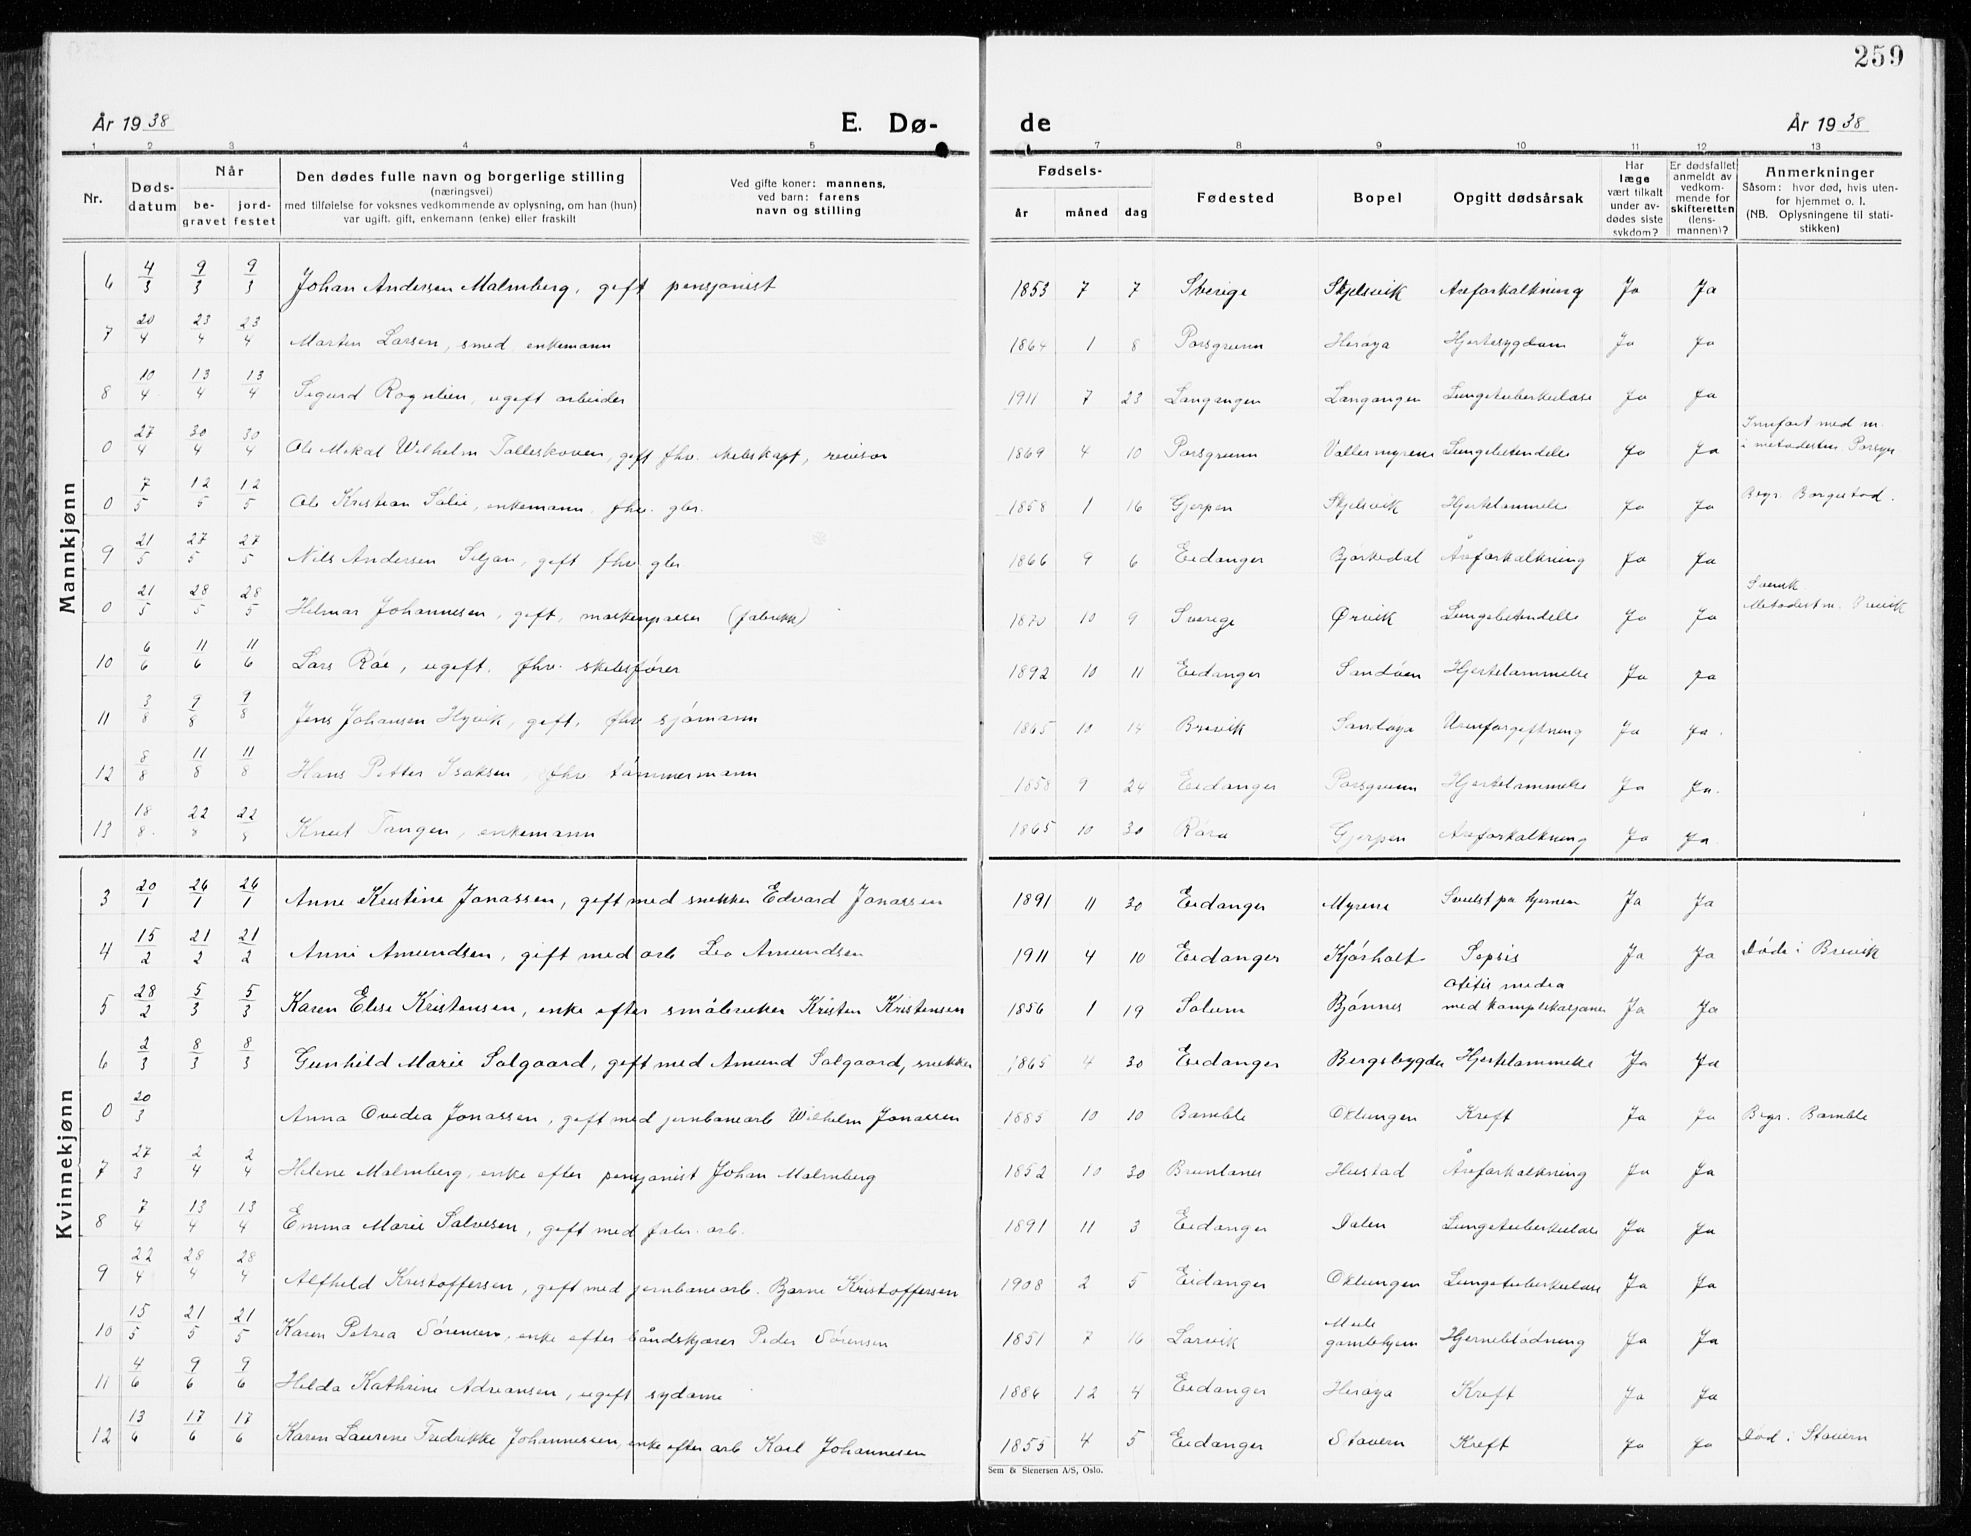 259
År 1938 E. Dø- de År 1938
1 2 3 4 5 7 8 9 10 11 12 13
Nr. Døds-datum Når be-gravet jord-festet Den dødes fulle navn og borgerlige stilling (næringsvei) med tilføielse for voksnes vedkommende av oplysning, om han (hun) var ugift, gift, enkemann (enke) eller fraskilt Ved gifte koner: mannens, ved barn: farens navn og stilling Fødsels- år måned dag Fødested Bopel Opgitt dødsårsak Har læge vært tilkalt under av-dødes siste sykdom? Er dødsfallet anmeldt av vedkom-mende for skifteretten (lens-mannen)? Anmerkninger Såsom: hvor død, hvis uten-for hjemmet o. l. (NB. Oplysningene til stati-stikken)
Mannkjønn
6 4/3 9/3 9/3 Johan Andersen Malmberg, gift pensjonist 1853 7 7 Sverige Skjelsvik Åreforkalkning Ja Ja
7 20/4 23/4 23/4 Marten Larsen, smed, enkemann 1864 1 8 Porsgrunn Herøya Hjertesygdom Ja Ja
8 10/4 13/4 13/4 Sigurd Rognlien, ugift arbeider 1911 7 23 Langangen Langangen Lungetuberkulose Ja Ja
0 27/4 30/4 30/4 Ole Mikal Wilhelm Tolleskoven, gift fhv. skibskapt, revisor 1869 4 10 Porsgrunn Vallermyrene Lungebetendelse Ja Ja Innført med m. i metodistm. Porsgr.
0 7/5 12/5 12/5 Ole Kristian Sølie, enkemann, fhv. gbr. 1858 1 16 Gjerpen Skjelsvik Hjertelammelse Ja Ja Begr. Borgestad.
9 21/5 27/5 27/5 Nils Andersen Siljan, gift fhv gbr 1866 9 6 Eidanger Bjørkedal Åreforkalkning Ja Ja
0 21/5 28/5 28/5 Helmar Johannesen, gift, maskinpasser (fabrikk) 1870 10 9 Sverige Ørvik Lungebetendelse Ja Ja Svensk Metodistm. Brevik
10 6/6 11/6 11/6 Lars Röe, ugift. fhv. skibsfører 1892 10 11 Eidanger Sandøen Hjertelammelse Ja Ja
11 3/8 9/8 9/8 Jens Johansen Hyvik, gift, fhv sjømann 1865 10 14 Brevik Sandøya Urinforgiftning Ja Ja.
12 8/8 11/8 11/8 Hans Petter Isaksen, fhv tømmermann 1858 9 24 Eidanger Porsgrunn Hjertelammelse Ja Ja.
13 18/8. 22/8 22/8 Knut Tangen, enkemann 1865 10 30 Röra Gjerpen Åreforkalkning Ja Ja.
Kvinnekjønn
3 20/1 26/1 26/1 Anne Kristine Jonassen, gift med snekker Edvard Jonassen 1891 11 30 Eidanger Myrene Svulst på hjernen Ja Ja
4 15/2 21/2 21/2 Anni Amundsen, gift med arb Leo Amundsen 1911 4 10 Eidanger Kjørholt Sepsis Ja Ja Døde i Brevik
5 28/2 5/3 5/3 Karen Elise Kristensen, enke efter småbruker Kristen Kristensen 1856 1 19 Solum Bjønnes otitis media med komplikasjoner Ja Ja
6 2/3 8/3 8/3 Gunhild Marie Solgaard, gift med Amund Solgaard, snekker 1865 4 30 Eidanger Bergsbygda Hjertelammelse Ja Ja
0 20/3 Anna Ovedia Jonassen, gift med jernbanearb Wilhelm Jonassen 1885 10 10 Bamble Oklungen Kreft Ja Ja Begr. Bamble
7 27/3 2/4 2/4 Helene Malmberg, enke efter pensjonist Johan Malmberg 1852 10 30 Brunlanes Heistad Åreforkalkning Ja Ja
8 7/4 13/4 13/4 Emma Marie Salvesen, gift med fabr. arb. 1891 11 3 Eidanger Dalen Lungetuberkulose Ja Ja
9 22/4 28/4 28/4 Alfhild Kristoffersen, gift med jernbanearb. Bjarne Kristoffersen 1908 2 5 Eidanger Oklungen Lungetuberkulose Ja Ja
10 15/5 21/5 21/5 Karen Petrea Sørensen, enke efter båndskjærer Peder Sørensen 1851 7 16 Larvik Mule gamlehjem Hjerneblødning Ja Ja
11 4/6 9/6 9/6 Hilda Kathrine Adreansen, ugift sydame 1886 12 4 Eidanger Herøya Kreft Ja Ja
12 13/6 17/6 17/6 Karen Laurene Fredrikke Johannessen, enke efter arb Karl Johannesen 1855 4 5 Eidanger Stavern Kreft Ja Ja Død i Stavern
Sem & Stenersen A/S, Oslo.